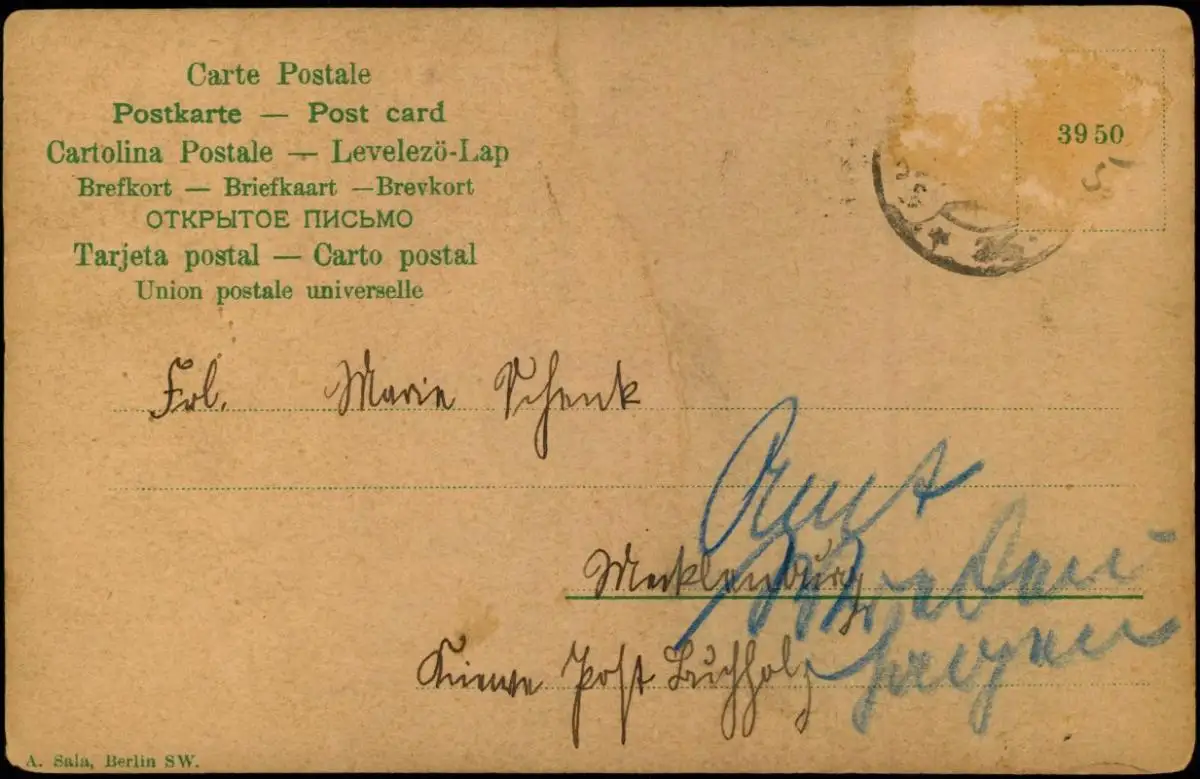 Carte Postale
Postkarte — Post card
Cartolina Postale — Levelezö-Lap
Brefkort — Briefkaart —Brevkort
ОТКРЫТОЕ ПИСЬМО
Tarjeta postal — Carto postal
Union postale universelle
3950
5
Frl. Marie Schenk
Amt
Mecklenburg
Post Buchholz
A. Sala, Berlin SW.